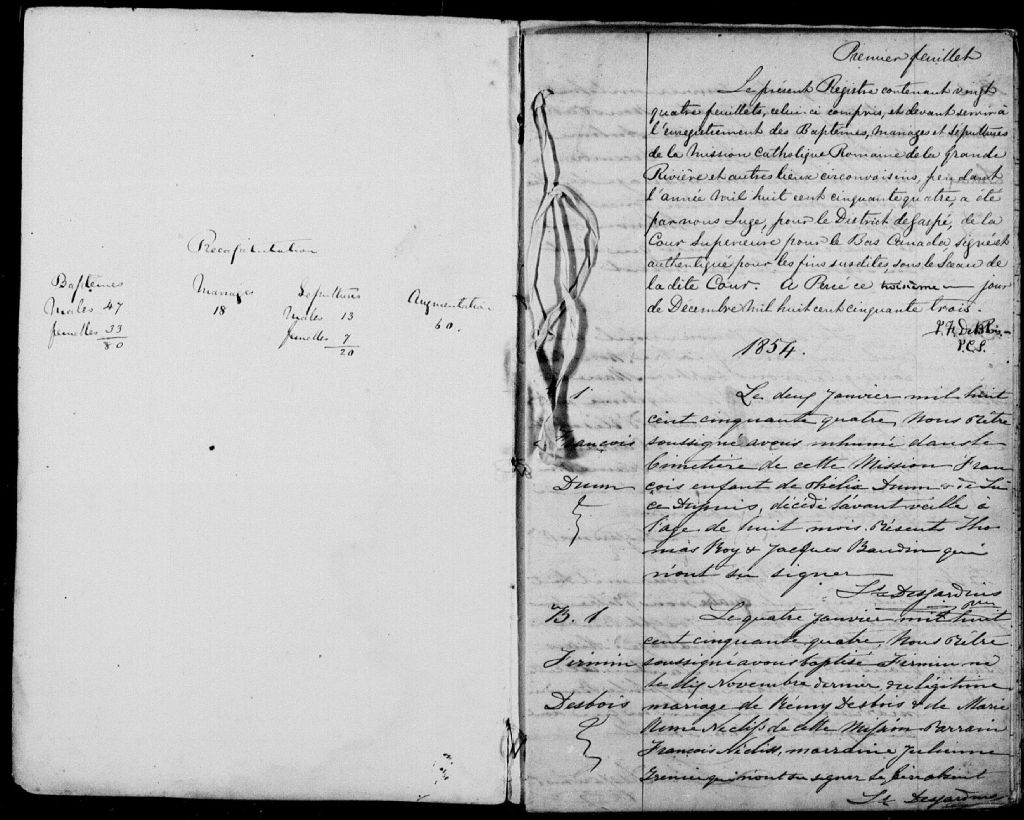 Recapitulation
Baptêmes
Males 47
femelles 33
80
Mariages
18
Sépultures
Males 13
femelles 7
20
Augmentation
60.
Premier feuillet
Le présent Registre contenant vingt
quatre feuillets, celui ci compris, et devant servir à
l'enregistrement des Baptêmes, mariages et sépultures
de la Mission Catholique Romaine de la grande
Rivière et autres lieux circonvoisins, pendant
l'année Mil huit cent cinquante quatre, a été
par nous Juge, pour le District de Gaspé, de la
Cour Superieure pour le Bas Canada, signé et
authentiqué pour les fins susdites, sous le Sceau de
la dite Cour. A Percé ce troisième jour
de Décembre Mil huit cent cinquante trois.
1854.
1
François
Dunn
Le deux Janvier mil huit
cent cinquante quatre, Nous Prêtre
soussigné avons inhumé dans le
Cimetière de cette Mission Fran
çois enfant de Dunn & de Lu
ce Dupuis, décédé l'avant veille à
l'age de huit mois. Présents Tho
mas Roy & Jacques Baudin qui
n'ont su signer
Desjardins
B. 1
Fermin
Desbois
Le quatre Janvier mil huit
cent cinquante quatre, Nous Prêtre
soussigné avons baptisé Fermin né
le dix Novembre dernier du légitime
mariage de Remy Desbois & de Marie
de cette Mission Parrain
François marraine Julienne
Grenier qui n'ont su signer
Desjardins